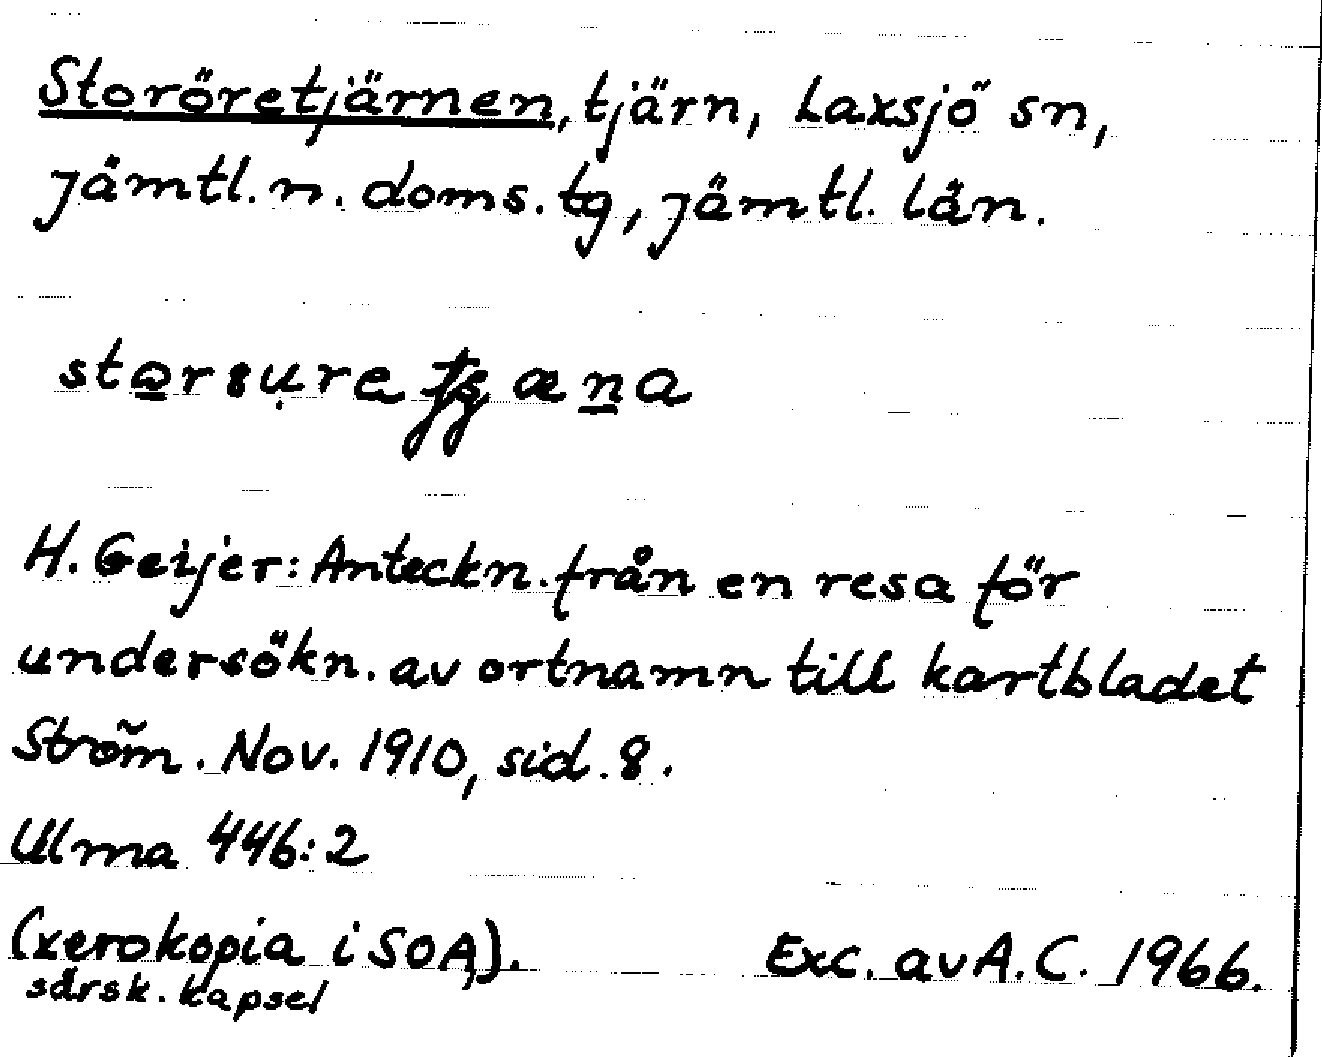 Storöretjärnen, tjärn, Laxsjö sn,
Jämtl. n. doms. tg, Jämtl. län.
H. Geijer: Anteckn. från en resa för
undersökn. av ortnamn till kartbladet
Ström. Nov. 1910, sid. 8.
Ulma 446:2
(xerokopia i SOA). Exc. av A.C. 1966.
särsk. kapsel